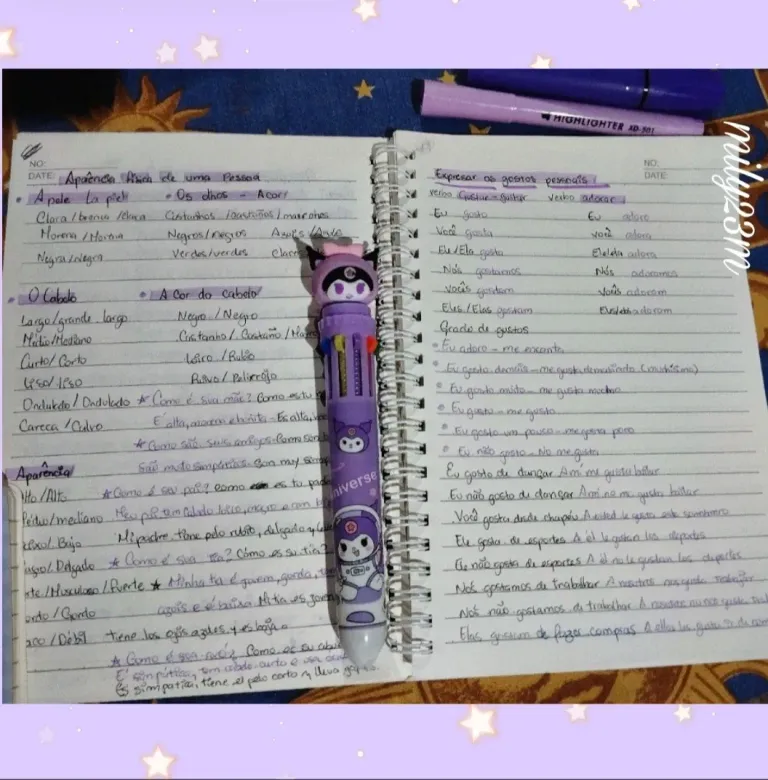 NO:
DATE: Aparência física de uma Pessoa
• A pele La piel
Clara/branca/clara
Morena/Morena
Negra/negra
• Os olhos - A cor
Castanhos/castaños/marrones
Negros/negros Azuis/Azule
Verdes/verdes Claros
• O Cabelo
Largo/grande largo
Médio/Mediano
Curto/Corto
Liso/liso
Ondulado/Ondulado
Careca/Calvo
• A Cor do cabelo
Negro/Negro
Castanho/Castaño/Marr
Loiro/Rubio
Ruivo/Pelirrojo
★ Como é sua mãe? Como es tu
É alta, morena e bonita - Es alta,
★ Como são seus amigos - Como son
São muito simpáticos - Son muy sim
Aparência
Alto/Alto
Médio/mediano
Baixo/Bajo
Delgado
Musculoso/Fuerte
Gordo/Gordo
Débil
★ Como é seu pai? como es tu padre
Meu pai tem cabelo loiro, magro e
Mi padre tiene pelo rubio, delgado y
★ Como é sua tia? Cómo es su tía?
★ Minha tia é jovem, gorda,
azuis e é baixa. Mi tía es joven
tiene los ojos azules y es baja.
★ Como é sua Como es su
É simpática, tem cabelo curto e usa
Es simpática, tiene el pelo corto y lleva gafas.
NO:
DATE:
Expresar os gostos pessoais
verbo Gostar - gustar verbo adorar
Eu gosto Eu adoro
Você gosta você adora
Ele/Ela gosta Ele/ela adora
Nós gostamos Nós adoramos
Vocês gostam Vocês adoram
Eles/Elas gostam Eles/elas adoram
Grado de gustos
• Eu adoro - me encanta
• Eu gosto demais - me gusta demasiado (muchísimo)
• Eu gosto muito - me gusta mucho
• Eu gosto - me gusta
• Eu gosto um pouco - me gusta poco
• Eu não gosto - No me gusta
Eu gosto de dançar A mi me gusta bailar
Eu não gosto de dançar A mi no me gusta bailar
Você gosta deste chapéu A usted le gusta este sombrero
Ele gosta de esportes A él le gustan los deportes
Ele não gosta de esportes A él no le gustan los deportes
Nós gostamos de trabalhar A nosotros nos gusta trabajar
Nós não gostamos de trabalhar A nosotros no nos gusta
Elas gostam de fazer compras A ellas les gusta
HIGHLIGHTER XD-501
universe
milyz3m